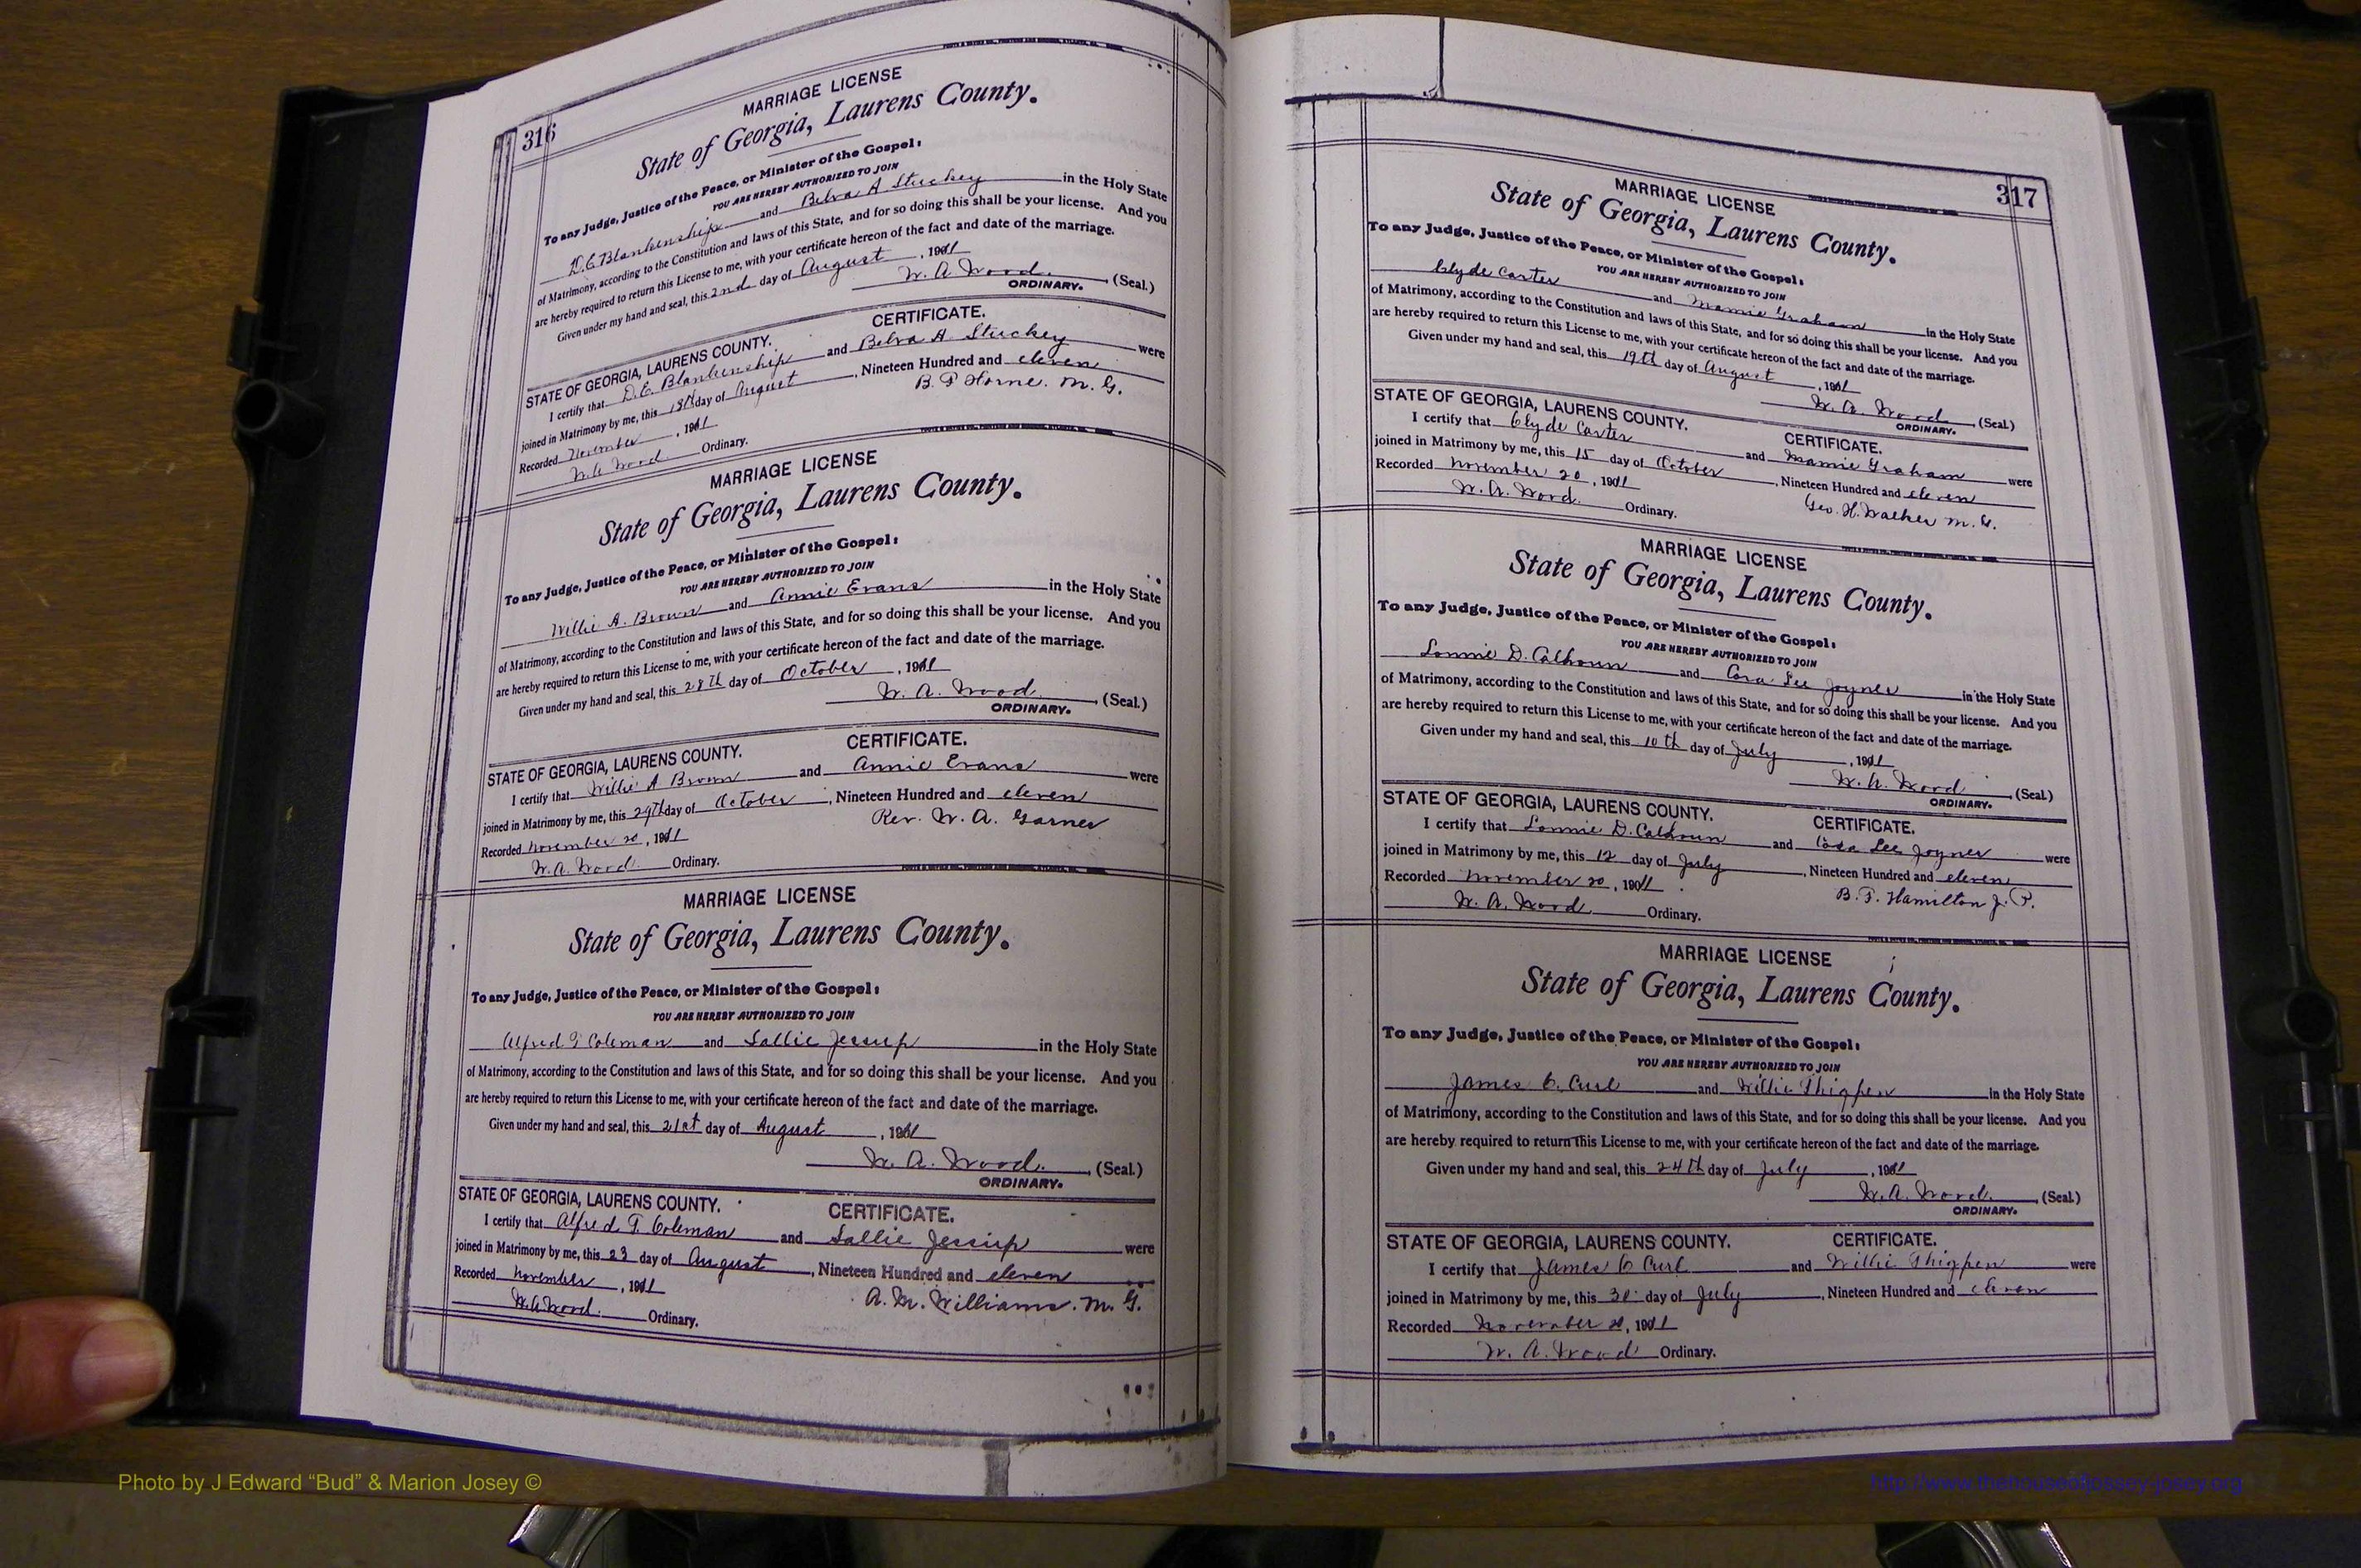 316
MARRIAGE LICENSE
State of Georgia, Laurens County.
To any Judge, Justice of the Peace, or Minister of the Gospel:
YOU ARE HEREBY AUTHORIZED TO JOIN
D.C. Blankenship and Belva A Stuckey in the Holy State
of Matrimony, according to the Constitution and laws of this State, and for so doing this shall be your license. And you
are hereby required to return this License to me, with your certificate hereon of the fact and date of the marriage.
Given under my hand and seal, this 2nd day of August, 1911
W. A. Wood. (Seal.)
ORDINARY.
CERTIFICATE.
STATE OF GEORGIA, LAURENS COUNTY.
I certify that D.C. Blankenship and Belva A. Stuckey were
joined in Matrimony by me, this day of August, Nineteen Hundred and eleven
Recorded November, 1911 B. Horne. M. G.
W. A. Wood Ordinary.
MARRIAGE LICENSE
State of Georgia, Laurens County.
To any Judge, Justice of the Peace, or Minister of the Gospel:
YOU ARE HEREBY AUTHORIZED TO JOIN
Willie A. Brown and Annie Evans in the Holy State
of Matrimony, according to the Constitution and laws of this State, and for so doing this shall be your license. And you
are hereby required to return this License to me, with your certificate hereon of the fact and date of the marriage.
Given under my hand and seal, this 28th day of October, 1911
W. A. Wood. (Seal.)
ORDINARY.
CERTIFICATE.
STATE OF GEORGIA, LAURENS COUNTY.
I certify that Willie A Brown and Annie Evans were
joined in Matrimony by me, this 29th day of October, Nineteen Hundred and eleven
Recorded November 20, 1911 Rev. W. A. Garner
W. A. Wood. Ordinary.
MARRIAGE LICENSE
State of Georgia, Laurens County.
To any Judge, Justice of the Peace, or Minister of the Gospel:
YOU ARE HEREBY AUTHORIZED TO JOIN
Alfred T Coleman and Sallie Jessup in the Holy State
of Matrimony, according to the Constitution and laws of this State, and for so doing this shall be your license. And you
are hereby required to return this License to me, with your certificate hereon of the fact and date of the marriage.
Given under my hand and seal, this 21st day of August, 1911
W. A. Wood. (Seal.)
ORDINARY.
STATE OF GEORGIA, LAURENS COUNTY. CERTIFICATE.
I certify that Alfred T. Coleman and Sallie Jessup were
joined in Matrimony by me, this 23 day of August, Nineteen Hundred and eleven
Recorded November, 1911 A. M. Williams. M. G.
W. A. Wood. Ordinary.
317
MARRIAGE LICENSE
State of Georgia, Laurens County.
To any Judge, Justice of the Peace, or Minister of the Gospel:
YOU ARE HEREBY AUTHORIZED TO JOIN
Clyde Carter and Mamie Graham in the Holy State
of Matrimony, according to the Constitution and laws of this State, and for so doing this shall be your license. And you
are hereby required to return this License to me, with your certificate hereon of the fact and date of the marriage.
Given under my hand and seal, this 19th day of August, 1911
W. A. Wood (Seal.)
ORDINARY.
STATE OF GEORGIA, LAURENS COUNTY. CERTIFICATE.
I certify that Clyde Carter and Mamie Graham were
joined in Matrimony by me, this 15 day of October, Nineteen Hundred and eleven
Recorded November 20, 1911 Geo. H. Walker M. G.
W. A. Wood. Ordinary.
MARRIAGE LICENSE
State of Georgia, Laurens County.
To any Judge, Justice of the Peace, or Minister of the Gospel:
YOU ARE HEREBY AUTHORIZED TO JOIN
Lonnie D. Calhoun and Cora Lee Joyner in the Holy State
of Matrimony, according to the Constitution and laws of this State, and for so doing this shall be your license. And you
are hereby required to return this License to me, with your certificate hereon of the fact and date of the marriage.
Given under my hand and seal, this 10th day of July, 1911
W. A. Wood (Seal.)
ORDINARY.
STATE OF GEORGIA, LAURENS COUNTY. CERTIFICATE.
I certify that Lonnie D. Calhoun and Cora Lee Joyner were
joined in Matrimony by me, this 12 day of July, Nineteen Hundred and eleven
Recorded November 20, 1911 B. F. Hamilton J. P.
W. A. Wood. Ordinary.
MARRIAGE LICENSE
State of Georgia, Laurens County.
To any Judge, Justice of the Peace, or Minister of the Gospel:
YOU ARE HEREBY AUTHORIZED TO JOIN
James C. Curl and Willie Thigpen in the Holy State
of Matrimony, according to the Constitution and laws of this State, and for so doing this shall be your license. And you
are hereby required to return this License to me, with your certificate hereon of the fact and date of the marriage.
Given under my hand and seal, this 24th day of July, 1911
W. A. Wood. (Seal.)
ORDINARY.
STATE OF GEORGIA, LAURENS COUNTY. CERTIFICATE.
I certify that James C Curl and Willie Thigpen were
joined in Matrimony by me, this 30 day of July, Nineteen Hundred and eleven
Recorded November 20, 1911
W. A. Wood Ordinary.
Photo by J Edward “Bud” & Marion Josey ©
http://www.thehouseofjossey-josey.org